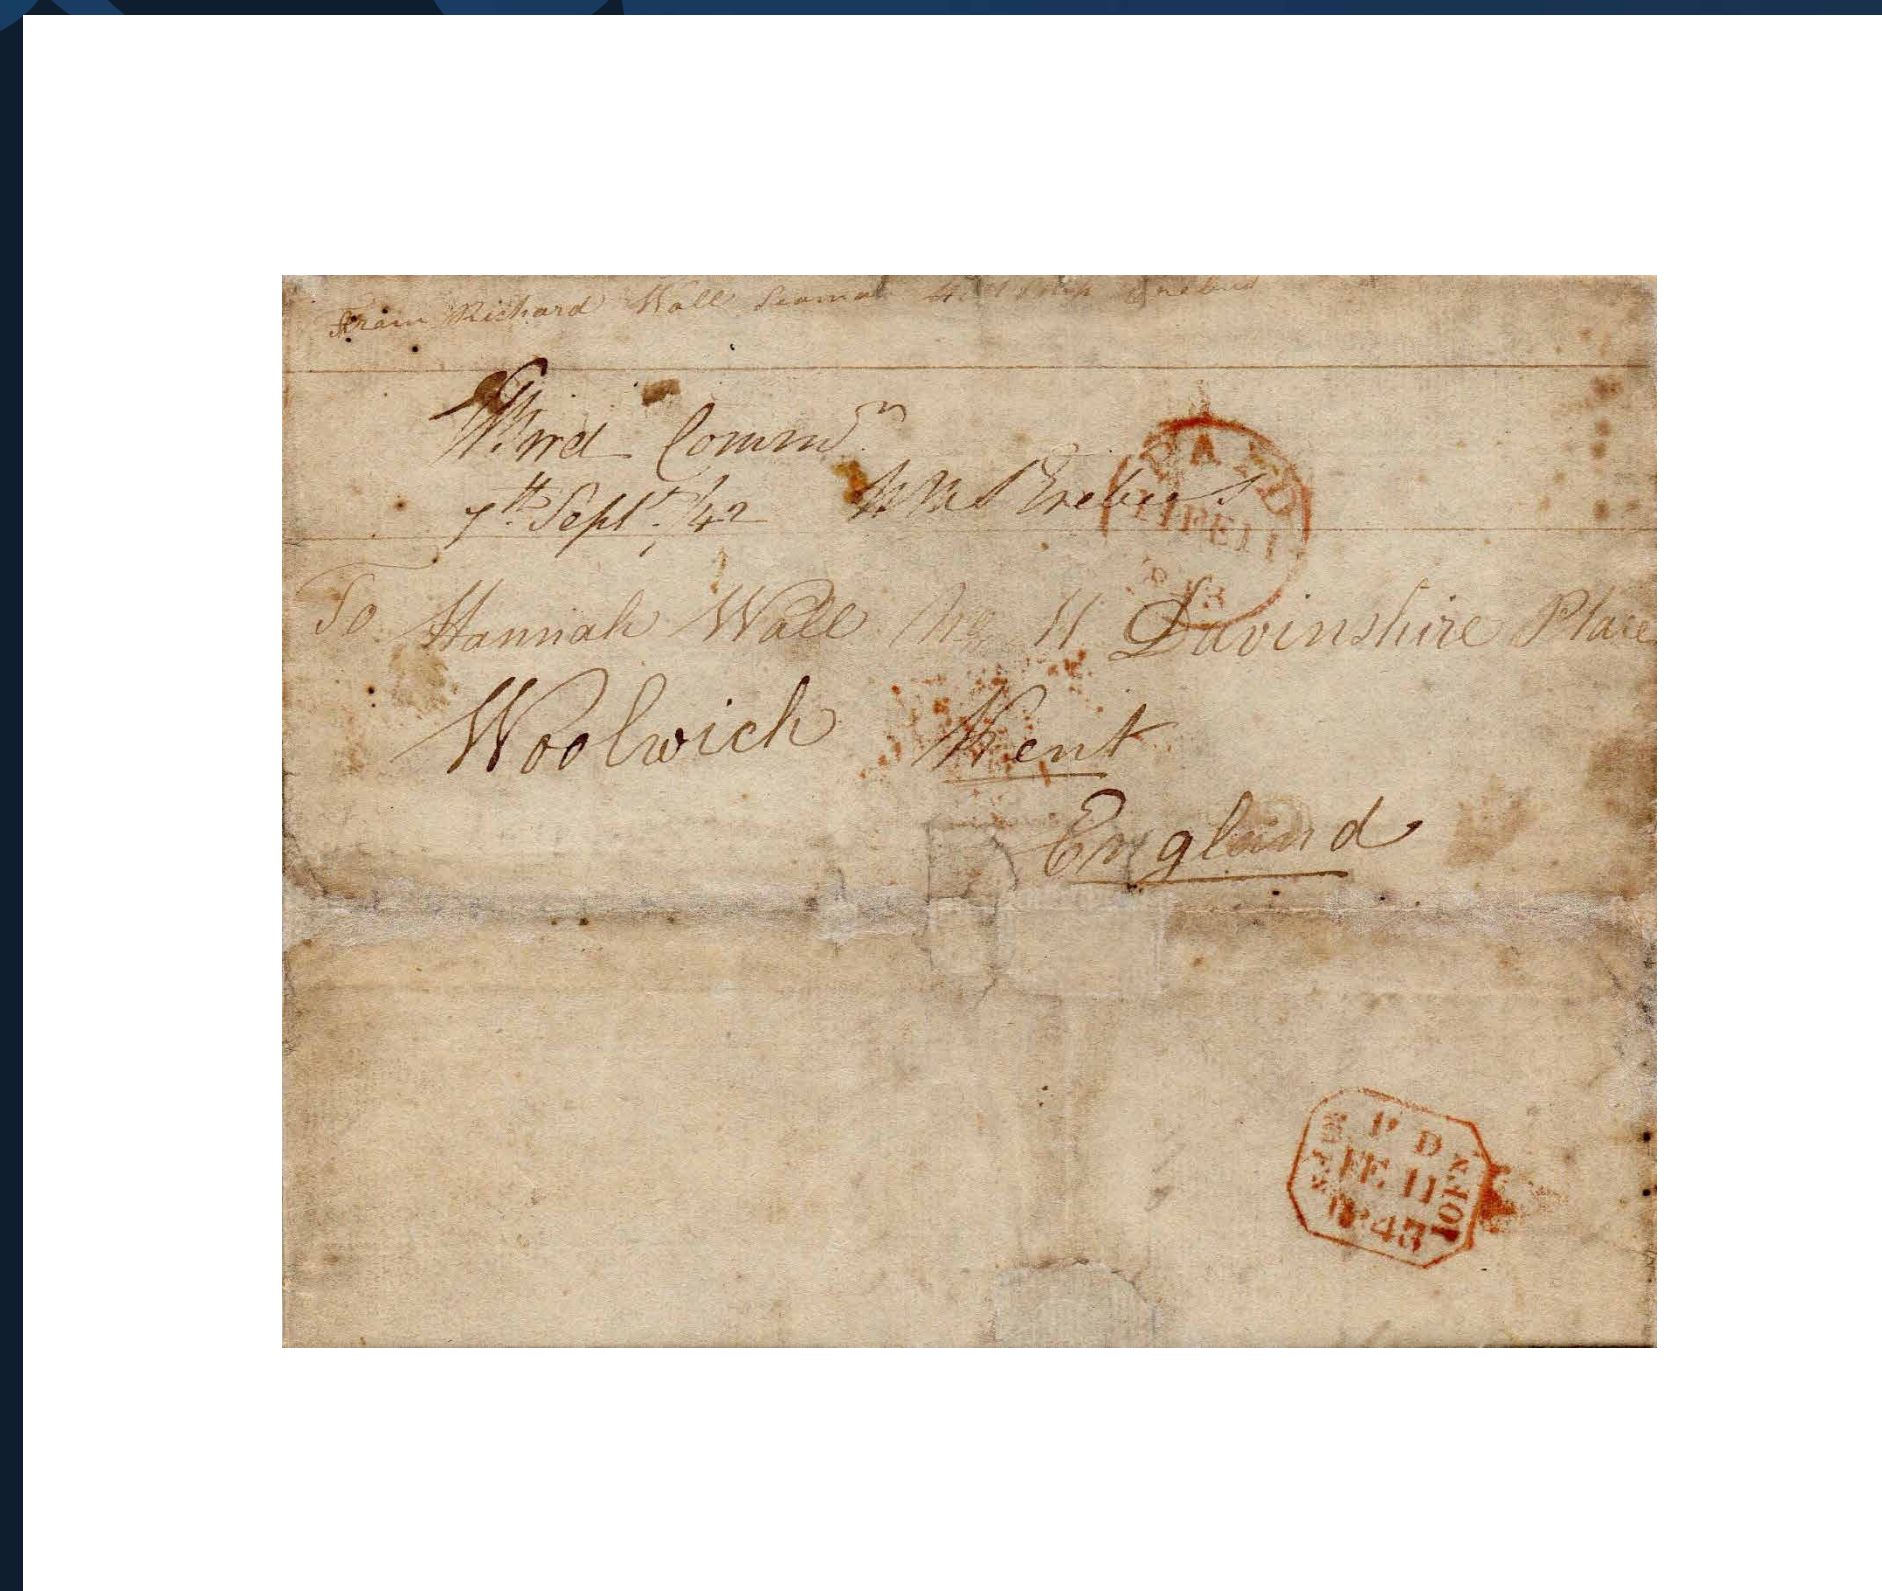 From Richard Wall Seaman H.M Ship Erebus
Bird Comm^r.
7th. Sept^r. /42 HMS Erebus
PAID
11 FE 11
1843
To Hannah Wall No 11 Davinshire Place
Woolwich Kent
England
P D
FE 11
1843